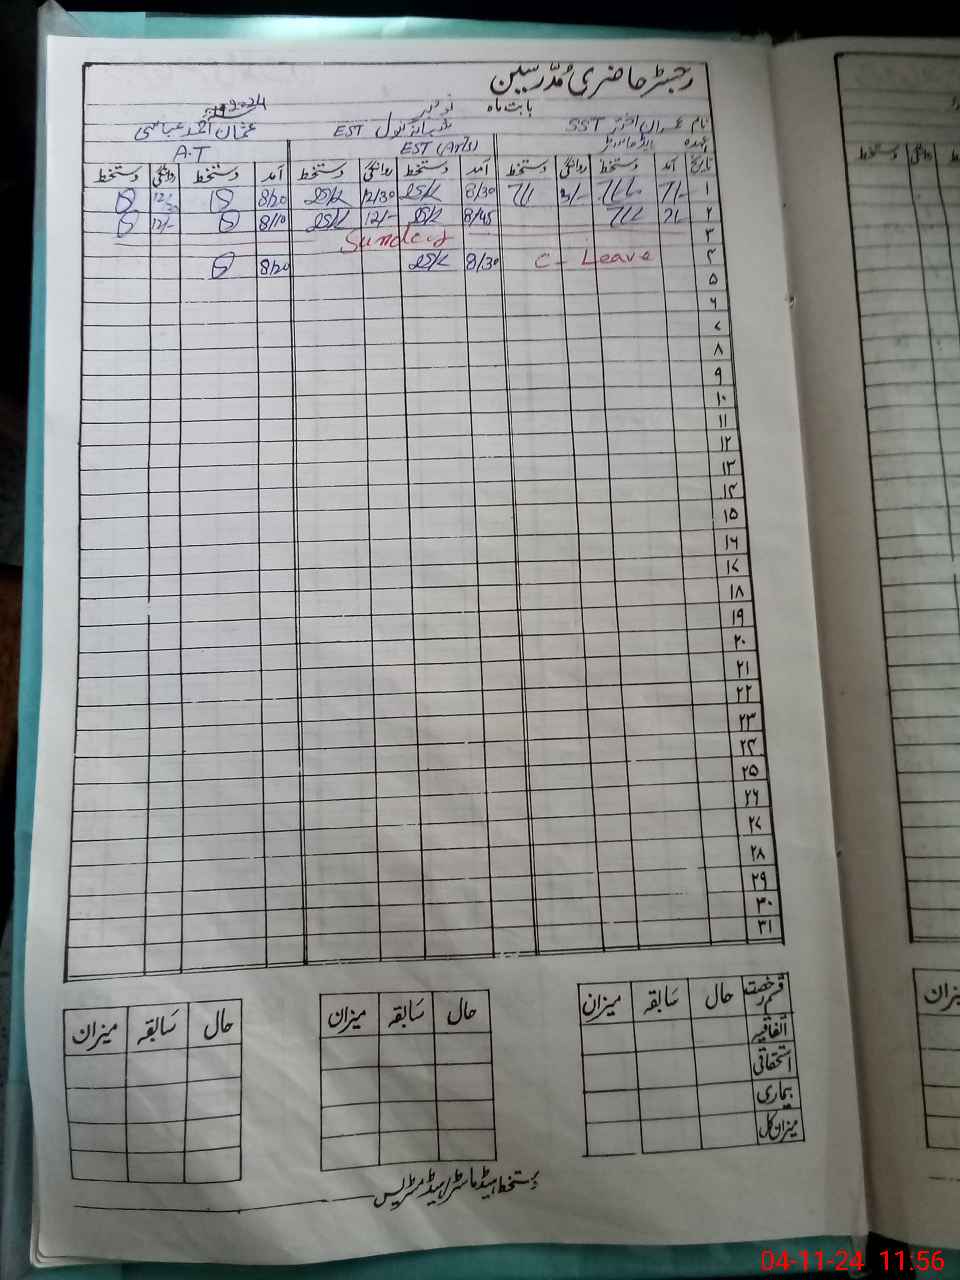 رجسٹر حاضری مُدّرسین
بابت ماہ نومبر 2024
نام عمران اختر SST EST عثمان احمد عباسی
عہدہ EST (Arts) A.T
تاریخ آمد دستخط روانگی دستخط آمد دستخط روانگی دستخط آمد دستخط روانگی دستخط
۱ 8/30 12/30 8/20
۲ 8/45 12/- 8/10 12/-
۳ Sunday
۴ C- Leave 8/30 8/20
۵
۶
۷
۸
۹
۱۰
۱۱
۱۲
۱۳
۱۴
۱۵
۱۶
۱۷
۱۸
۱۹
۲۰
۲۱
۲۲
۲۳
۲۴
۲۵
۲۶
۲۷
۲۸
۲۹
۳۰
۳۱
قسم رخصت حال سَابقہ میزان حال سَابقہ میزان حال سَابقہ میزان
اتفاقیہ
استحقاقی
بیماری
میزان کل
دستخط ہیڈماسٹر/ہیڈمسٹریس
04-11-24 11:56